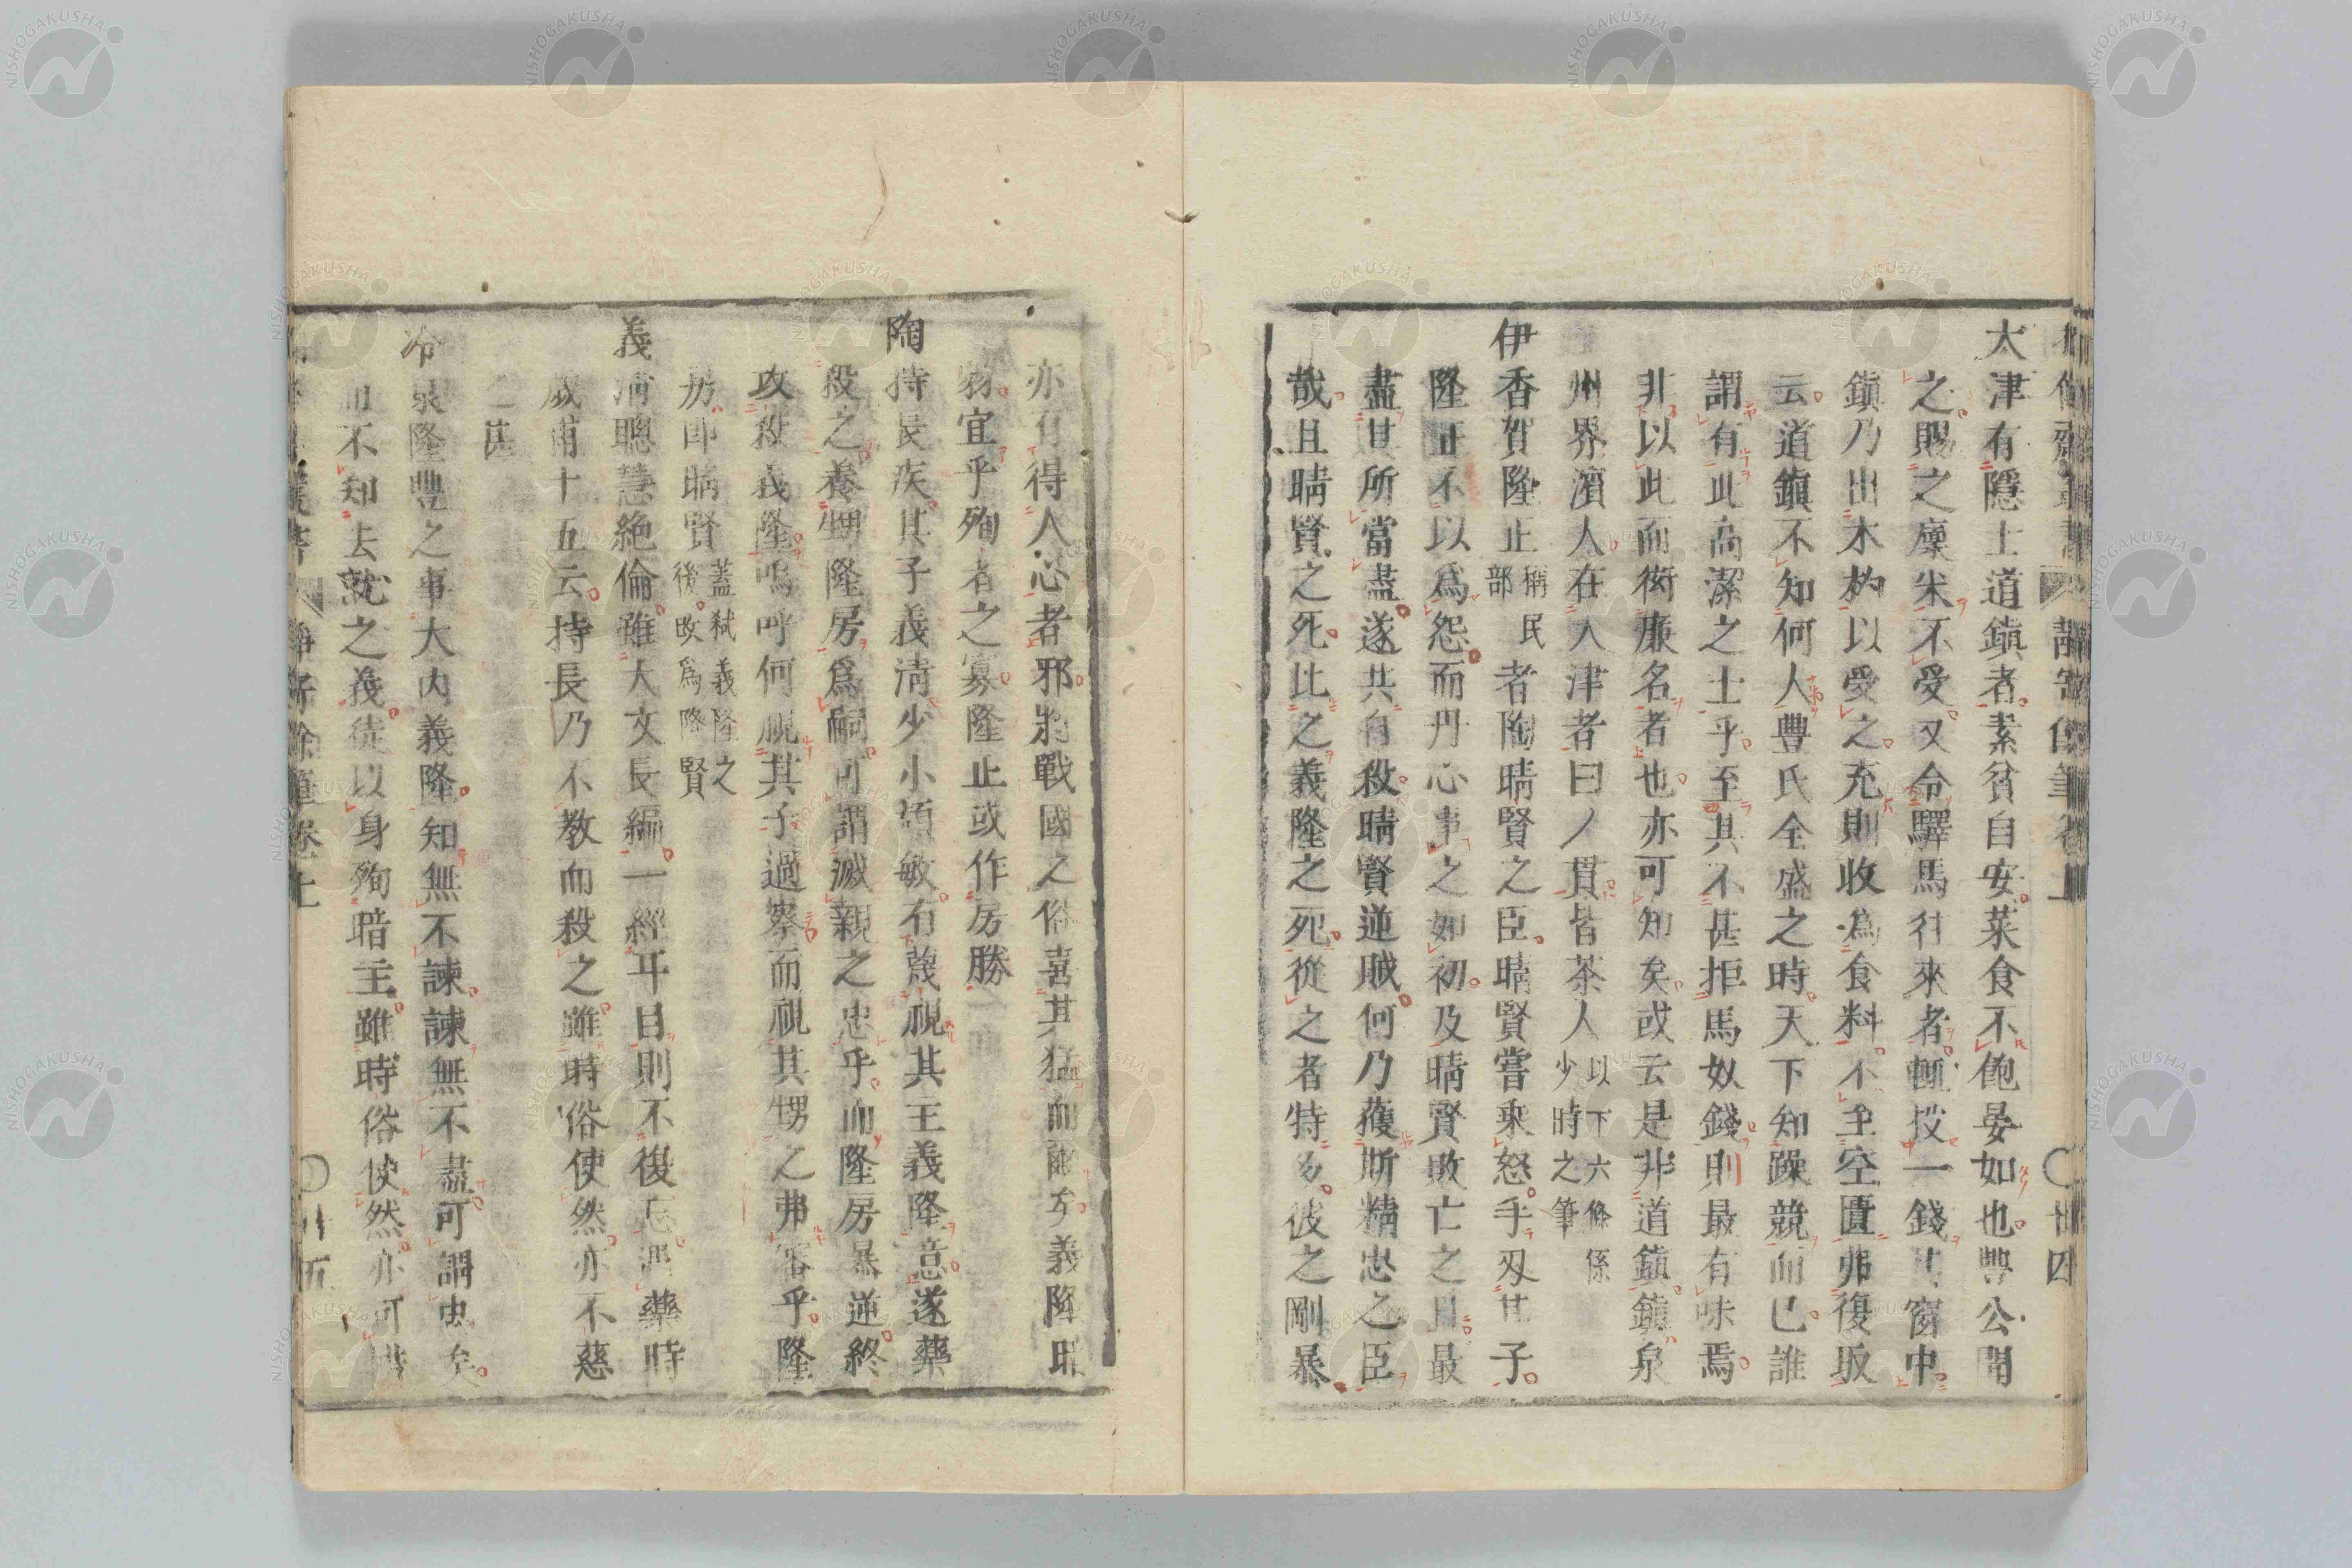 大津有隱士道鎮者素貧自安菜食不飽晏如也豐公聞
之賜之廩米不受又令驛馬往來者輒投一錢其窗中
鎮乃出木杓以受之充則收爲食料不至空匱弗復取
云道鎮不知何人豐氏全盛之時天下知躁競而已誰
謂有此高潔之士乎至其不甚拒馬奴錢則最有味焉
非以此而衒廉名者也亦可知矣或云是非道鎮鎮泉
州界濱人在大津者曰ノ貫皆茶人以下六條係少時之筆
伊香賀隆正稱民部者陶晴賢之臣晴賢嘗乘怒手刃其子
隆正不以爲怨而丹心事之如初及晴賢敗亡之日最
盡其所當盡遂共自殺晴賢逆賊何乃獲斯精忠之臣
哉且晴賢之死比之義隆之死從之者特多彼之剛暴
亦有得人心者邪將戰國之俗喜其猛而爾矣義隆
宜乎殉者之寡隆正或作房勝
陶持長疾其子義清少小穎敏有蔑視其主義隆意遂藥
殺之養甥隆房爲嗣可謂滅親之忠乎而隆房暴逆終
攻殺義隆嗚呼何脱其子過察而視其甥之弗審乎隆
房即晴賢蓋弑義隆之後改爲隆賢
義清聰慧絶倫雖大文長編一經耳目則不復忘遇藥時
歲甫十五云持長乃不教而殺之雖時俗使然亦不慈
之甚
冷泉隆豐之事大内義隆知無不諫諫無不盡可謂忠矣
而不知去就之義徒以身殉暗主雖時俗使然亦可惜